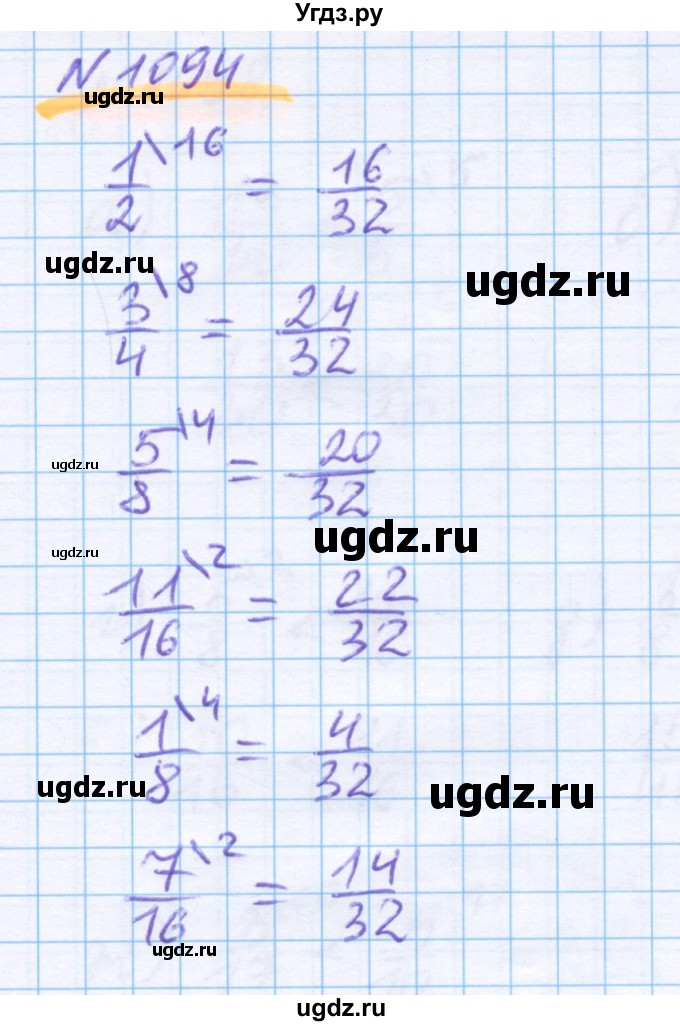 Угдз.ру
N 1094
ugdz.ru
1/2 \16 = 16/32
ugdz.ru
ugdz.ru
3/4 \8 = 24/32
5/8 \4 = 20/32
ugdz.ru
ugdz.ru
ugdz.ru
11/16 \2 = 22/32
1/8 \4 = 4/32
ugdz.ru
ugdz.ru
7/16 \2 = 14/32
ugdz.ru
ugdz.ru